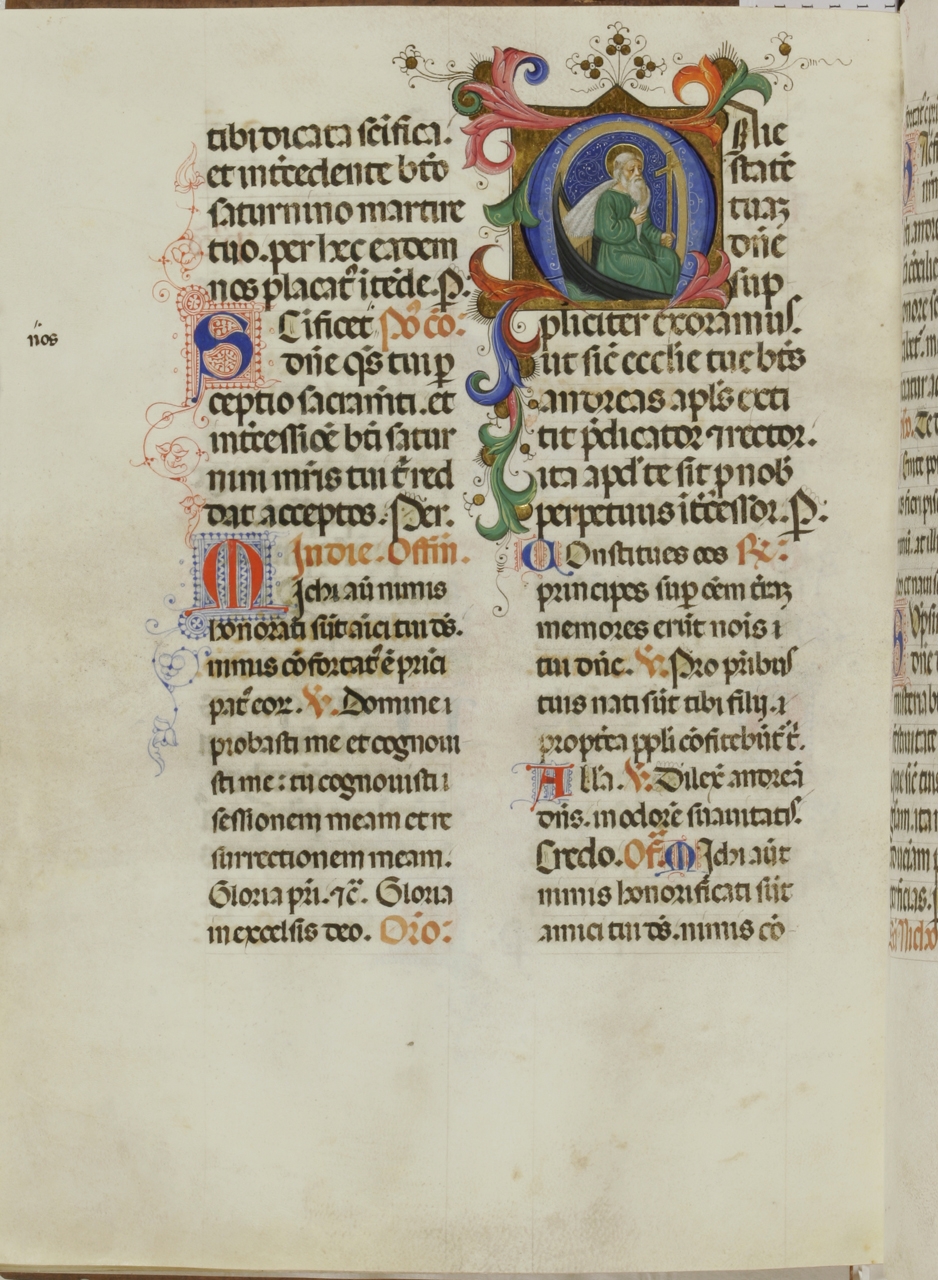 nos
tibi dicata sc̄ifica.
et int̄cedente bt̄o
saturnino martire
tuo. per hec eadem
nos placat᷒ it̄ede. P.
SCificet Po᷒ co᷒:
dn̄e qs̄ tui ꝑ
ceptio sacram̄ti. et
int̄cessiōe bt̄i satur
nini mr̄is tui t̄ red
dat acceptos. Per.
In die. Offm̄.
MIchi aū nimis
honorati sūt aīci tui ds̄.
nimis cōfortat᷒ ē prīci
pat᷒ eoꝝ. V. Domine
probasti me et cognoui
sti me: tu cognouisti
sessionem meam et re
surrectionem meam.
Gloria pr̄i. ⁊c̄. Gloria
in excelsis deo. Oro᷒:
MAie
statē
tuaꝫ
dn̄e
sup
pliciter exoramus.
ut sic̄ ecclie tue bt̄s
andreas apl̄s exti
tit p̄dicator ⁊ rector.
ita apd̓ te sit ꝓ nob̄
perpetuus it̄cessor. P.
COnstitues eos R᷒:
principes suꝑ ōem t̄raꝫ
memores erūt nōis
tui dn̄e. V. Pro pr̄ibus
tuis nati sūt tibi filij.
propt̄ea ppl̄i cōfitebūt᷒ t̄.
All̄a. V. Dilex̄ andreā
dn̄s. in odorē suauitatis.
Credo. Of᷒. MIchi aūt
nimis honorificati sūt
amici tui ds̄. nimis cō